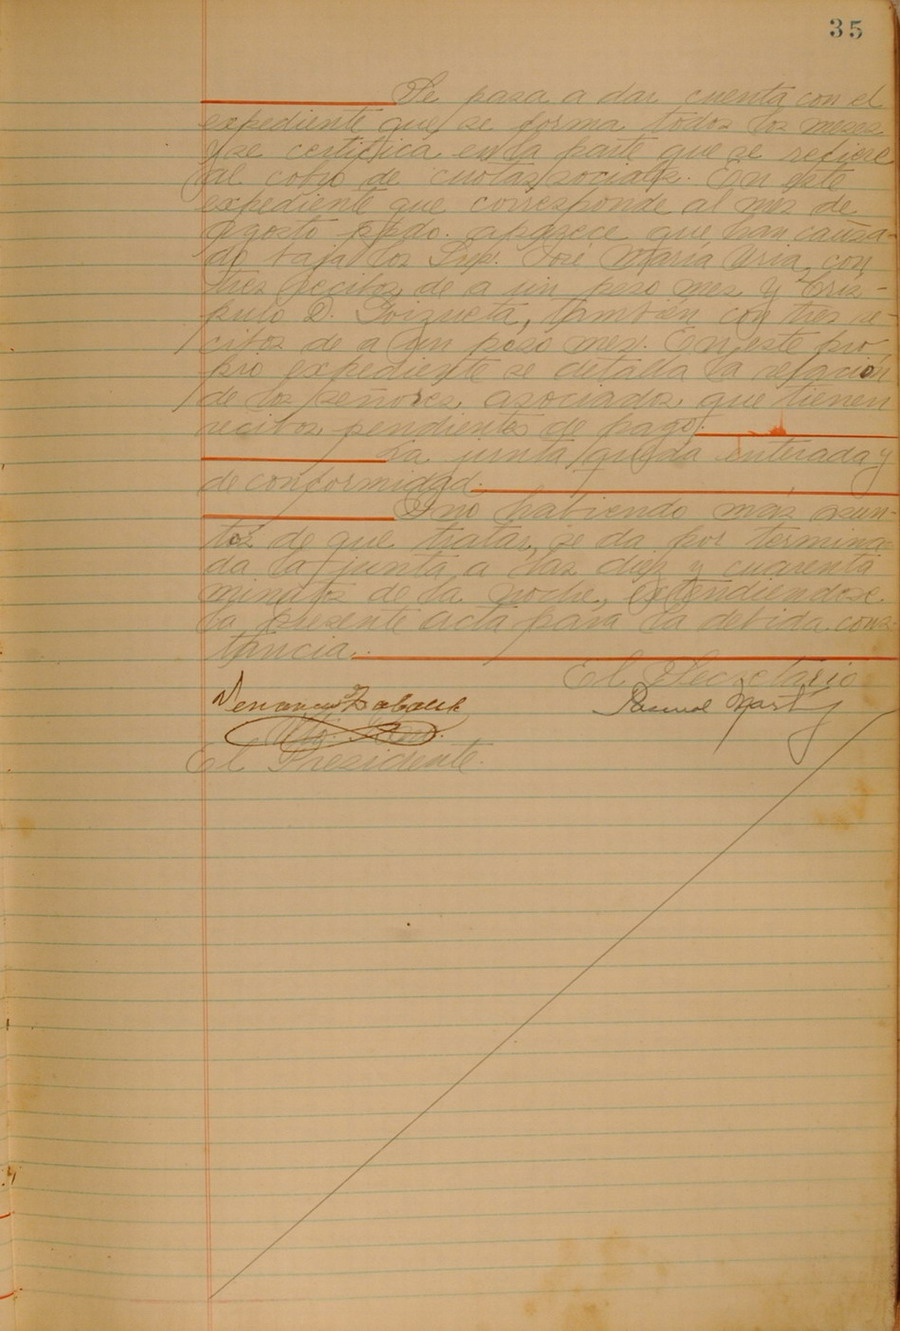 35
Se pasa a dar cuenta con el
expediente que se forma todos los meses
y se certifica en la parte que se refiere
al cobro de cuotas sociales. En este
expediente que corresponde al mes de
agosto ppdo. aparece que han causa-
do baja los Srs. José María Uria, con
tres recibos de a un peso mes y Cris-
pulo D. Goizueta, también con tres re-
cibos de a un peso mes. En este pro
pio expediente se detalla la relación
de los señores asociados que tienen
recibos pendientes de pago.
La junta queda enterada y
de conformidad.
Y no habiendo más asun-
tos de que tratar, se da por termina-
da la junta a las diez y cuarenta
minutos de la noche, extendiendose
la presente acta para la debida cons-
tancia.
El Secretario
Venancio Zabaleta
Pascual Marty
Vto. Bno.
El Presidente.